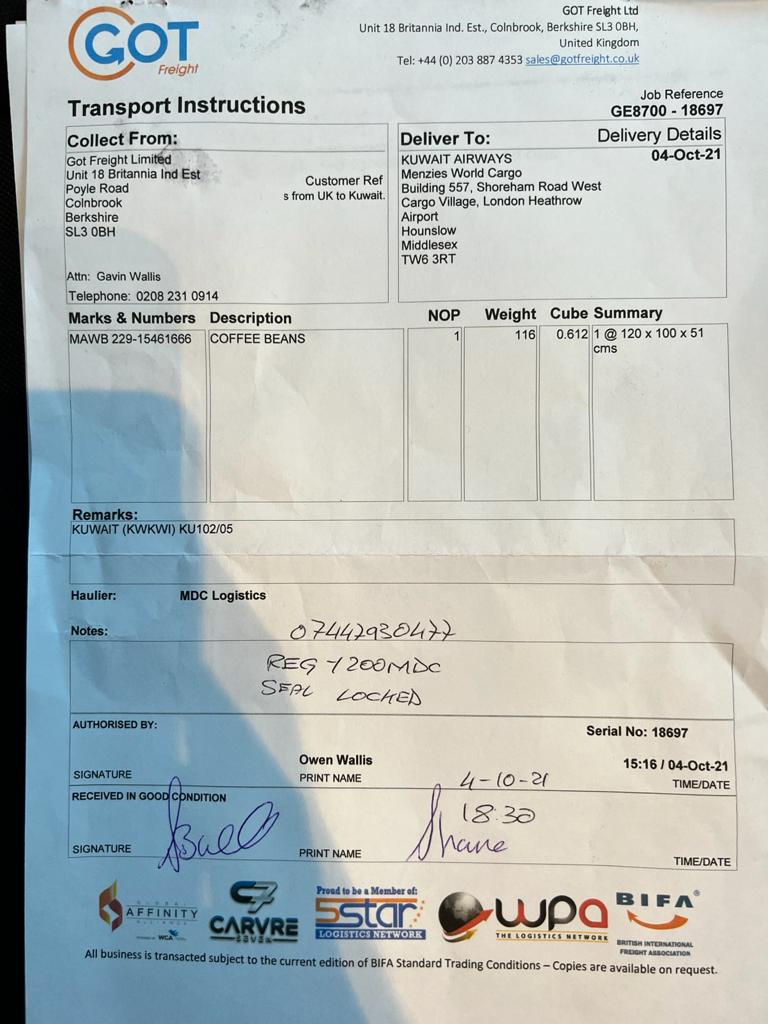 GOT
Freight
GOT Freight Ltd
Unit 18 Britannia Ind. Est., Colnbrook, Berkshire SL3 0BH,
United Kingdom
Tel: +44 (0) 203 887 4353 sales@gotfreight.co.uk
Transport Instructions
Job Reference
GE8700 - 18697
Collect From:
Got Freight Limited
Unit 18 Britannia Ind Est
Poyle Road
Colnbrook
Berkshire
SL3 0BH
Customer Ref
s from UK to Kuwait.
Attn: Gavin Wallis
Telephone: 0208 231 0914
Deliver To:
Delivery Details
04-Oct-21
KUWAIT AIRWAYS
Menzies World Cargo
Building 557, Shoreham Road West
Cargo Village, London Heathrow
Airport
Hounslow
Middlesex
TW6 3RT
Marks & Numbers Description NOP Weight Cube Summary
MAWB 229-15461666 COFFEE BEANS 1 116 0.612 1 @ 120 x 100 x 51
cms
Remarks:
KUWAIT (KWKWI) KU102/05
Haulier: MDC Logistics
Notes: 07447930477
REG Y200MDC
SEAL LOCKED
AUTHORISED BY:
Serial No: 18697
Owen Wallis
15:16 / 04-Oct-21
SIGNATURE PRINT NAME TIME/DATE
4-10-21
RECEIVED IN GOOD CONDITION
18:30
Shane
SIGNATURE PRINT NAME TIME/DATE
GLOBAL
AFFINITY
ALLIANCE
WCA
C7
CARVRE
SEVEN
Proud to be a Member of:
5star
LOGISTICS NETWORK
wpa
THE LOGISTICS NETWORK
BIFA®
BRITISH INTERNATIONAL
FREIGHT ASSOCIATION
All business is transacted subject to the current edition of BIFA Standard Trading Conditions – Copies are available on request.